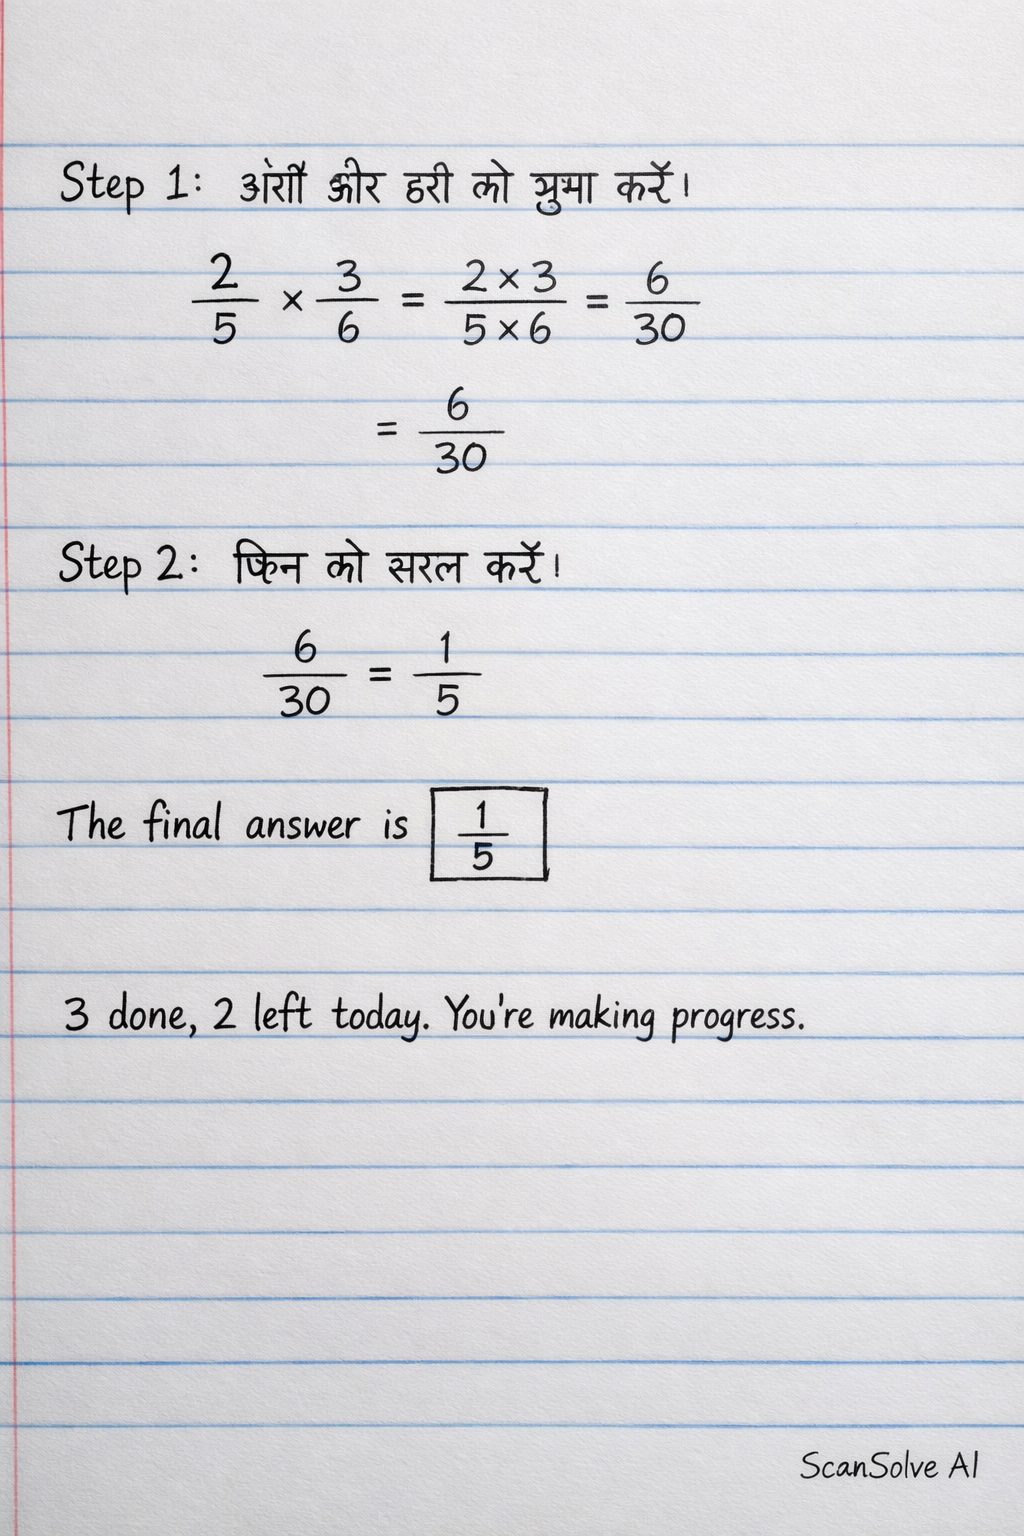 Step 1: करें।
2/5 × 3/6 = 2×3/5×6 = 6/30
= 6/30
Step 2: को सरल करें।
6/30 = 1/5
The final answer is 1/5
3 done, 2 left today. You're making progress.
ScanSolve AI